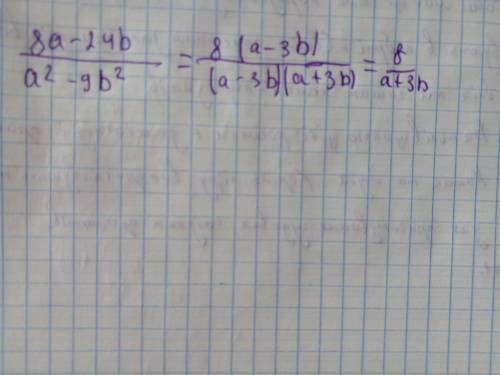 (8a-24b)/(a²-9b²) = 8(a-3b)/((a-3b)(a+3b)) = 8/(a+3b)